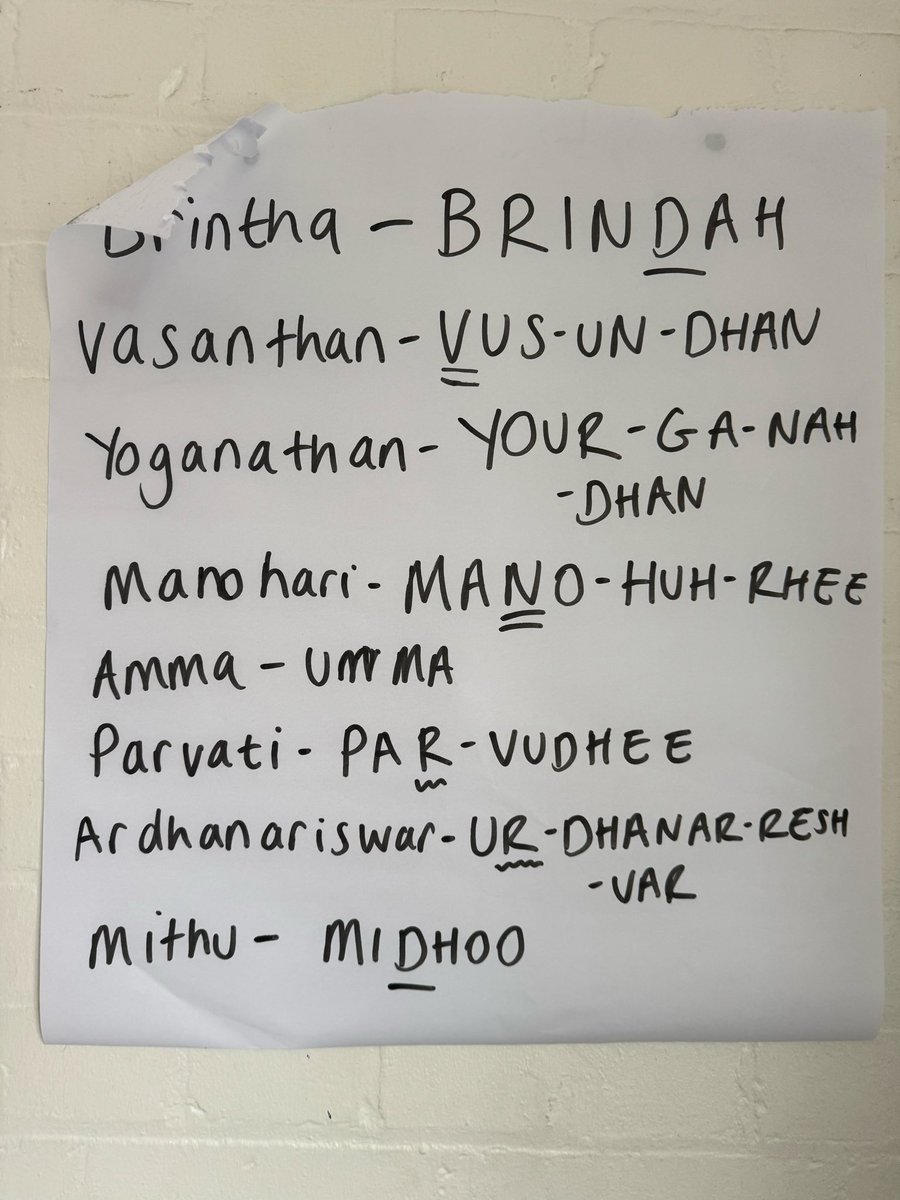 Brintha - BRINDAH
Vasanthan - VUS-UN-DHAN
Yoganathan - YOUR-GA-NAH
-DHAN
Manohari - MANO-HUH-RHEE
Amma - UMMA
Parvati - PAR-VUDHEE
Ardhanariswar - UR-DHANAR-RESH
-VAR
Mithu - MIDHOO